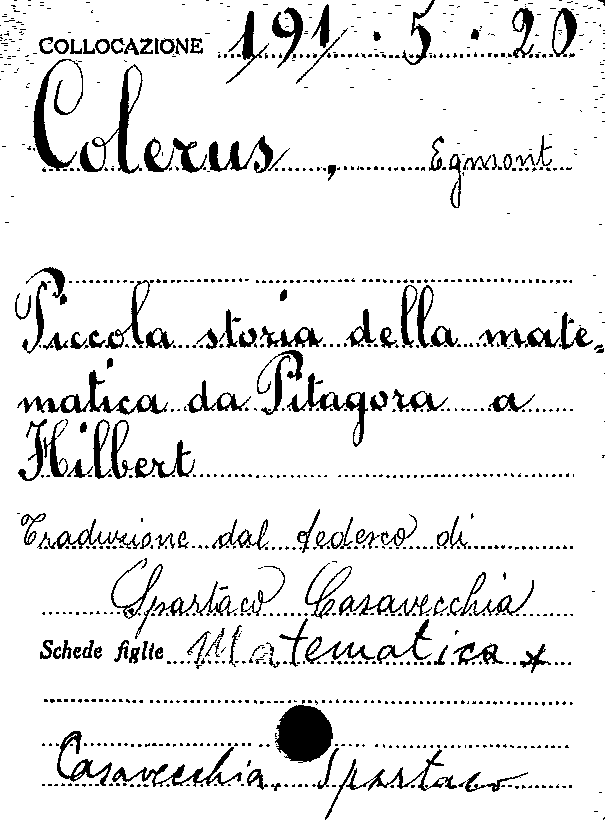 COLLOCAZIONE 191.5.20
Colerus, Egmont
Piccola storia della mate-
matica da Pitagora a
Hilbert
Traduzione dal tedesco di
Spartaco Casavecchia
Schede figlie Matematica *
Casavecchia, Spartaco